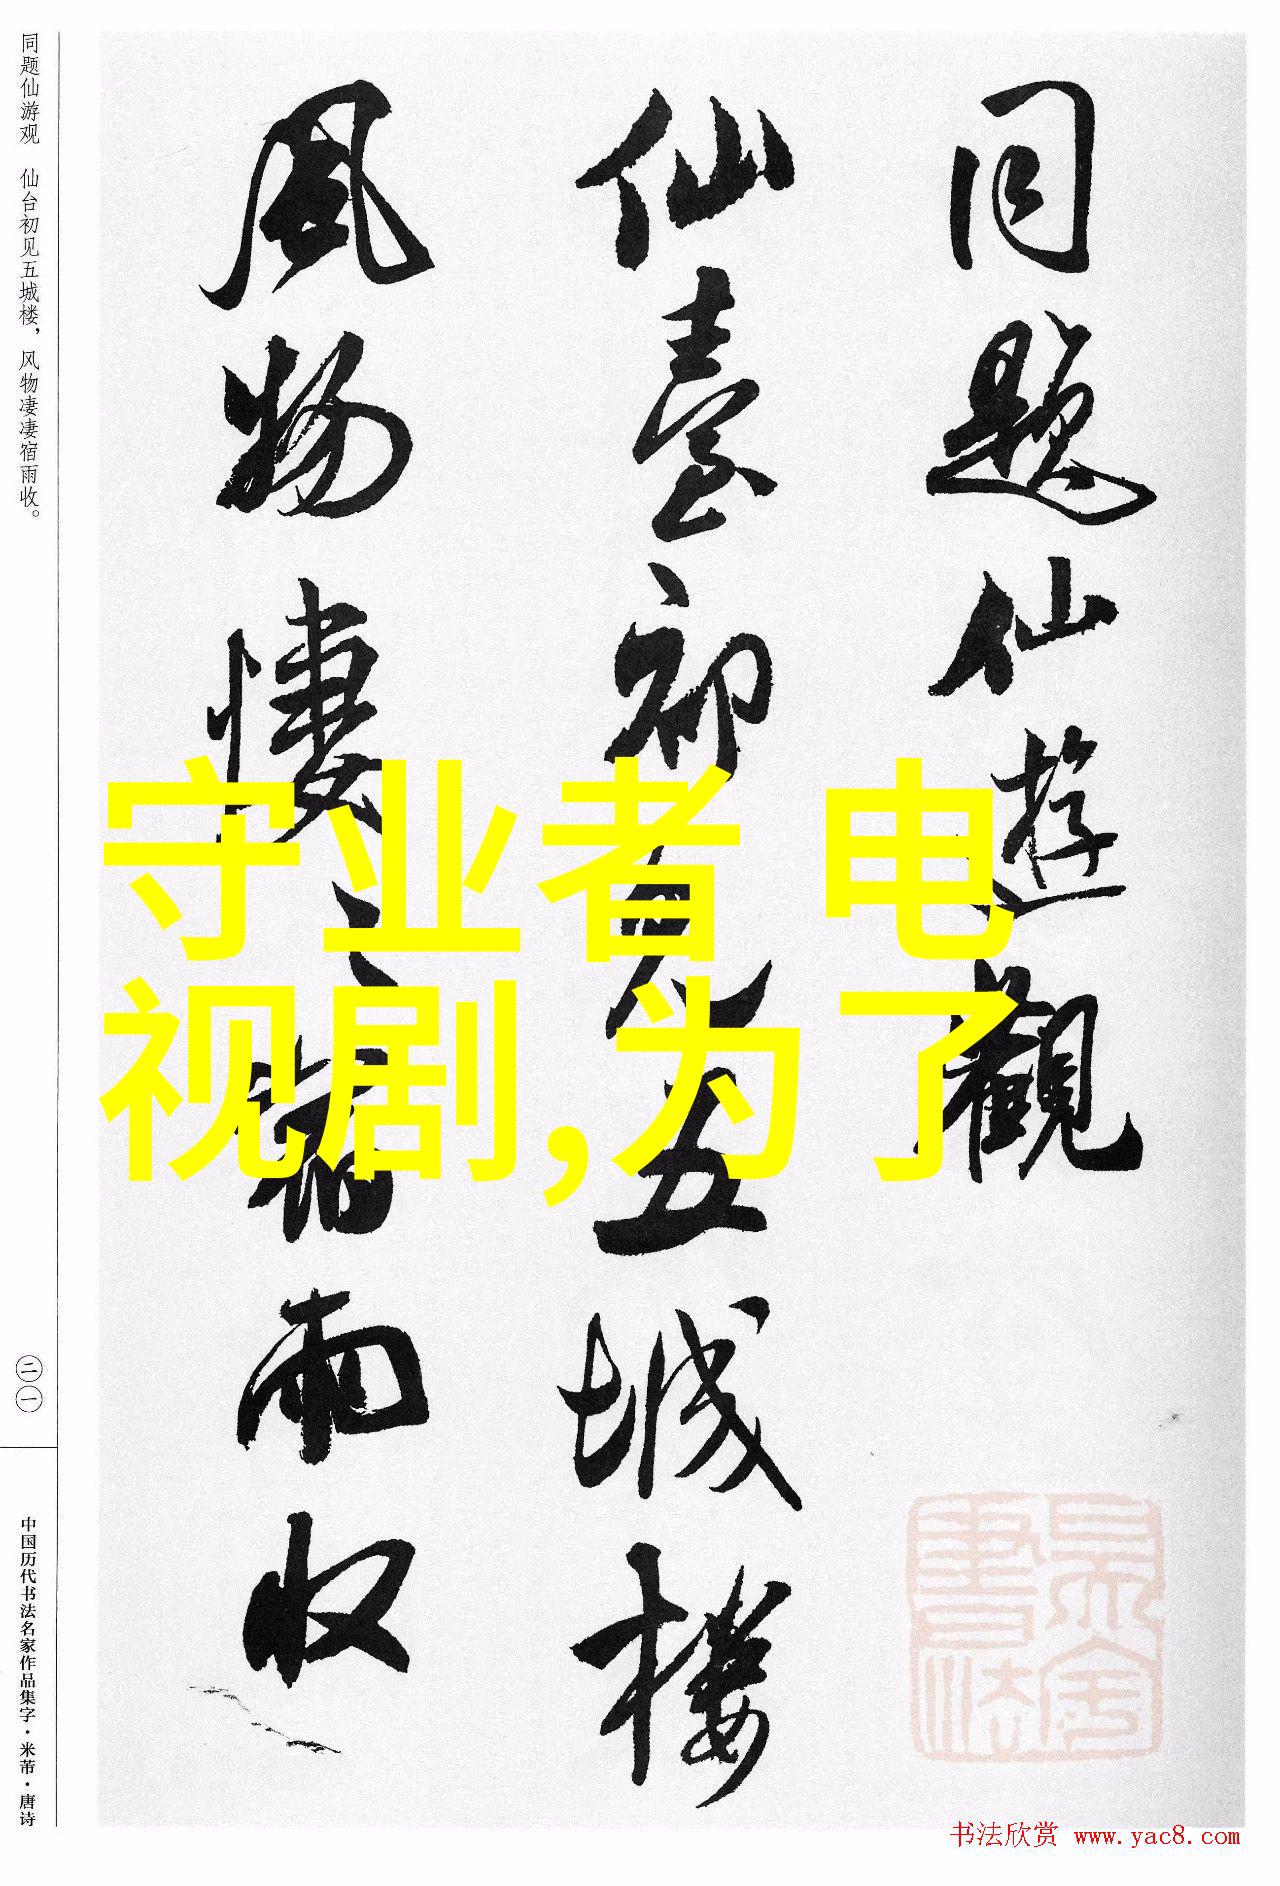 同题仙游观　仙台初见五城楼，风物凄凄宿雨收。
二一
中国历代书法名家作品集字·米芾·唐诗
同題仙遊觀
仙臺初見五城樓
風物悽〻宿雨收
守业者 电
视剧,为了
书法欣赏 www.yac8.com